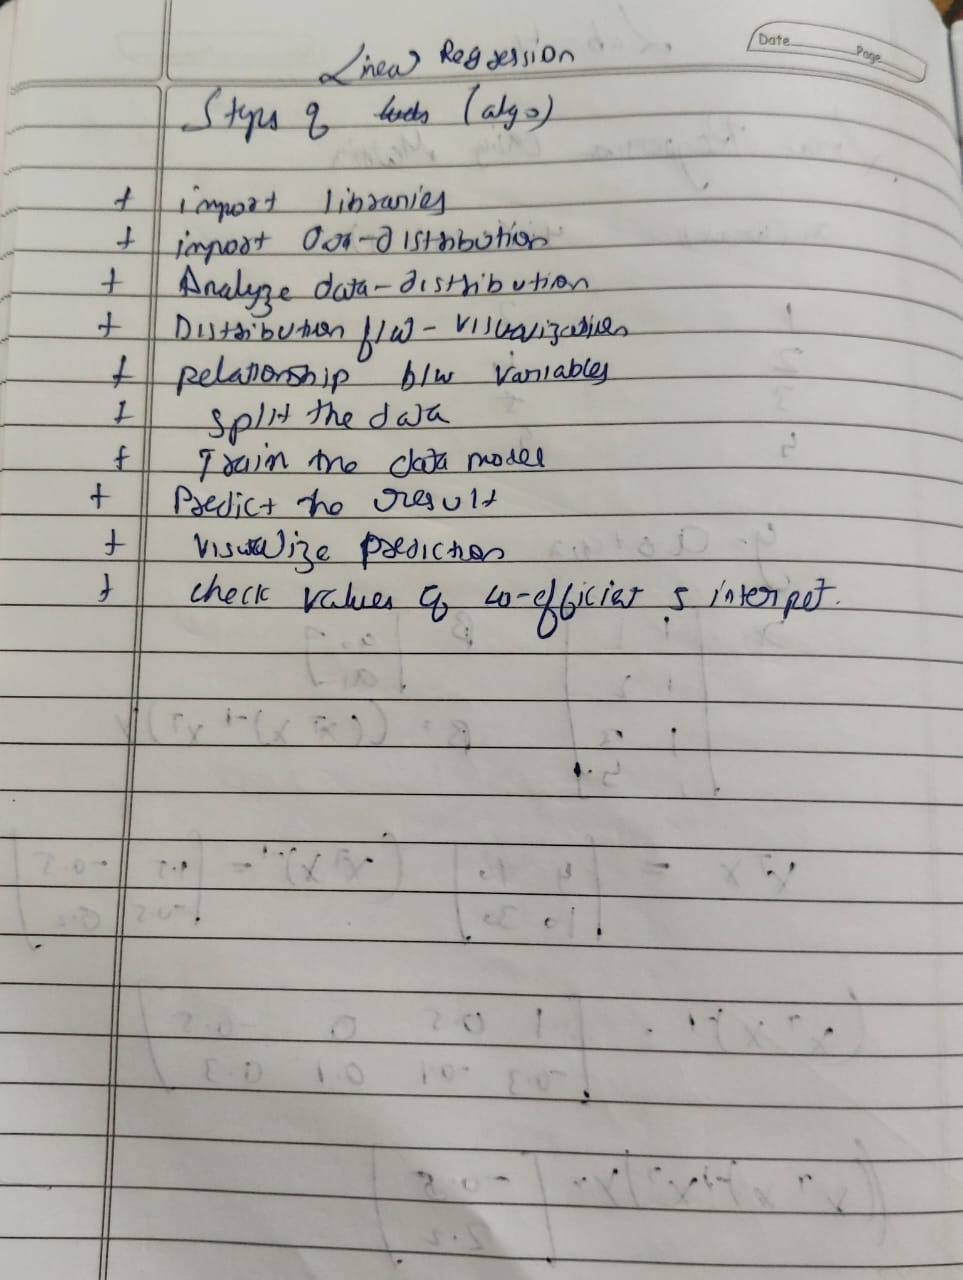 Date Page
Linear Regression
Steps of (algo)
+ import libraries
+ import distribution
+ Analyze data-distribution
+ Distribution b/w - visualization
+ relationship b/w variables
+ split the data
+ Train the data model
+ Predict the result
+ visualize prediction
+ check values of co-efficient interpet.